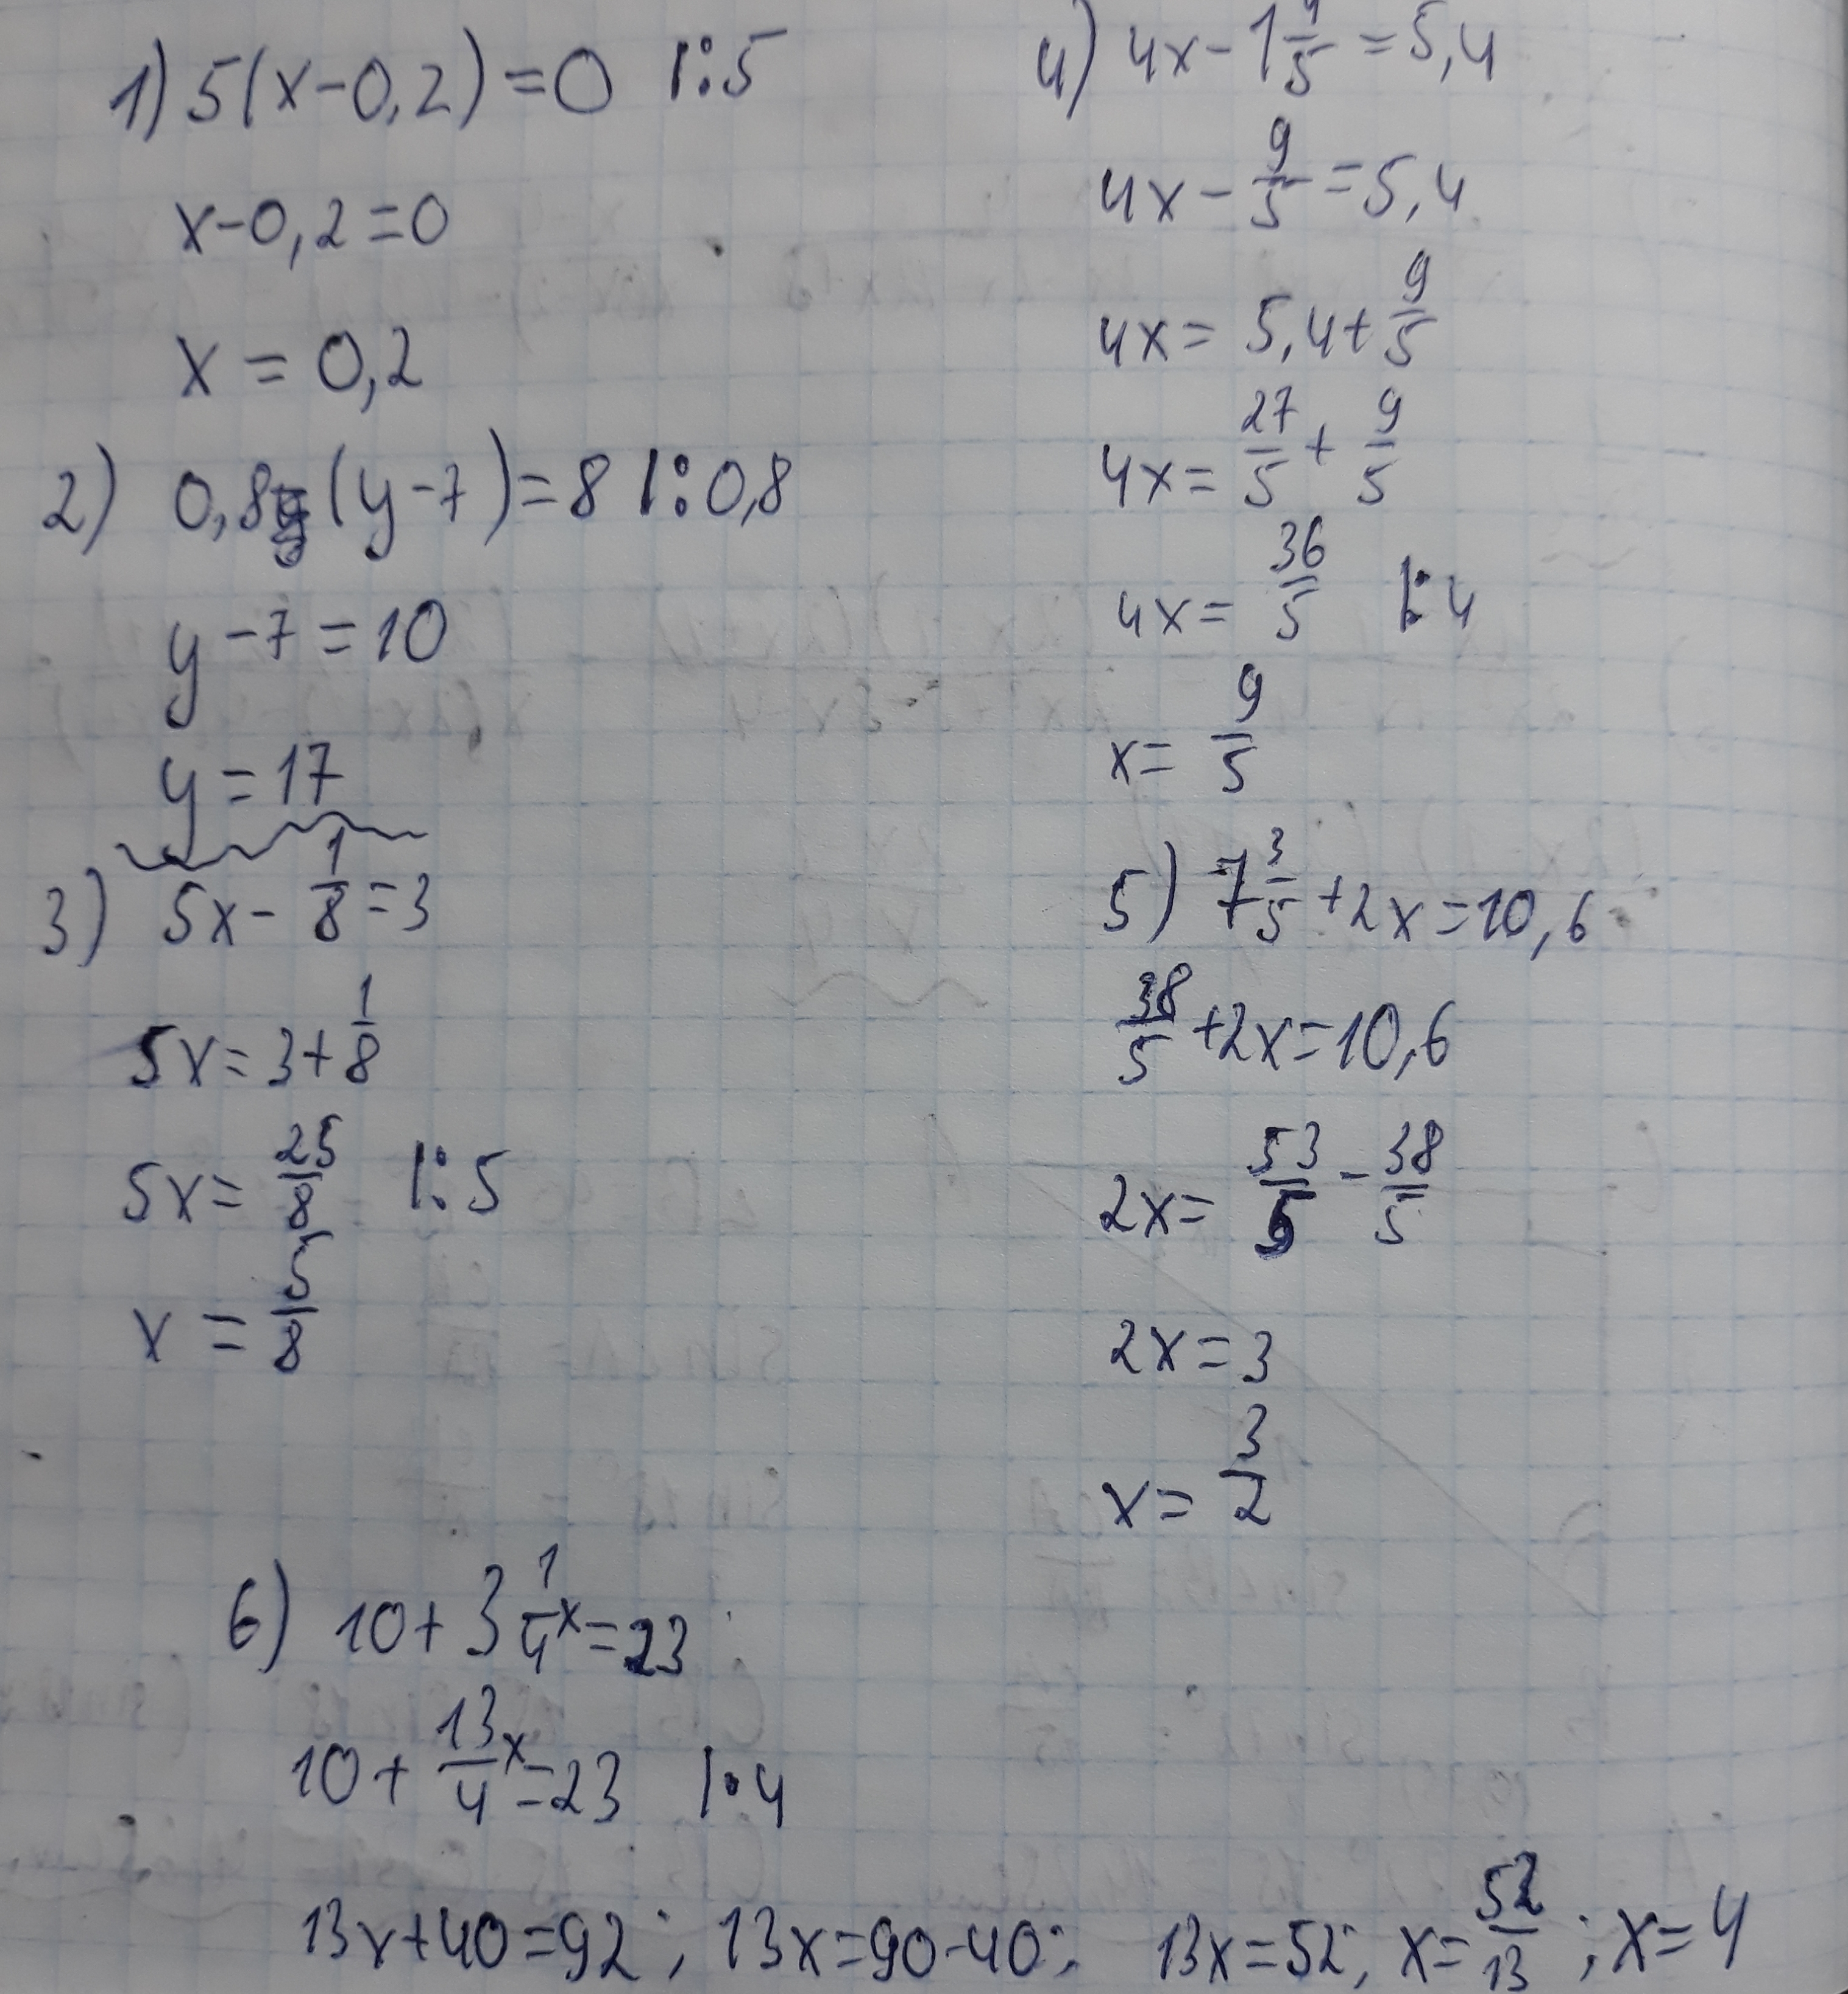 1) 5(x-0,2)=0 |:5
x-0,2=0
x=0,2
2) 0,8(y-7)=8 |:0,8
y-7=10
y=17
3) 5x-1/8=3
5x=3+1/8
5x=25/8 |:5
x=5/8
4) 4x-1 4/5=5,4
4x-9/5=5,4
4x=5,4+9/5
4x=27/5+9/5
4x=36/5 |:4
x=9/5
5) 7 3/5+2x=10,6
38/5+2x=10,6
2x=53/5-38/5
2x=3
x=3/2
6) 10+3 1/4x=23
10+13/4x=23 |·4
13x+40=92; 13x=90-40; 13x=52; x=52/13; x=4